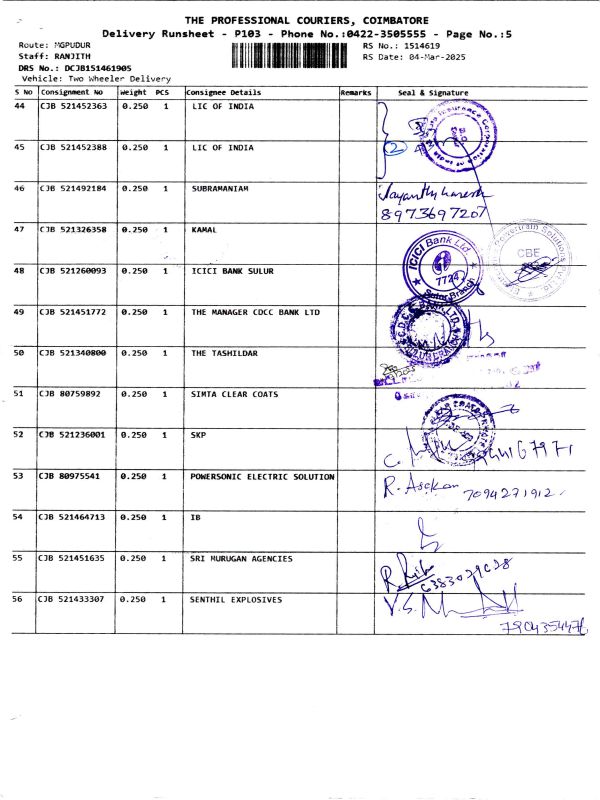 THE PROFESSIONAL COURIERS, COIMBATORE
Delivery Runsheet - P103 - Phone No.:0422-3505555 - Page No.:5
Route: MGPUDUR
RS No.: 1514619
Staff: RANJITH
RS Date: 04-Mar-2025
DRS No.: DCJB151461905
Vehicle: Two Wheeler Delivery
S No Consignment No Weight PCS Consignee Details Remarks Seal & Signature
44 CJB 521452363 0.250 1 LIC OF INDIA
45 CJB 521452388 0.250 1 LIC OF INDIA
2
46 CJB 521492184 0.250 1 SUBRAMANIAM
8973697207
47 CJB 521326358 0.250 1 KAMAL
48 CJB 521260093 0.250 1 ICICI BANK SULUR
ICICI Bank Ltd
7724
Sulur Branch
CBE
49 CJB 521451772 0.250 1 THE MANAGER CDCC BANK LTD
50 CJB 521340800 0.250 1 THE TASHILDAR
51 CJB 80759892 0.250 1 SIMTA CLEAR COATS
52 CJB 521236001 0.250 1 SKP
53 CJB 80975541 0.250 1 POWERSONIC ELECTRIC SOLUTION
R. Asokan 7094271912
54 CJB 521464713 0.250 1 IB
55 CJB 521451635 0.250 1 SRI MURUGAN AGENCIES
56 CJB 521433307 0.250 1 SENTHIL EXPLOSIVES